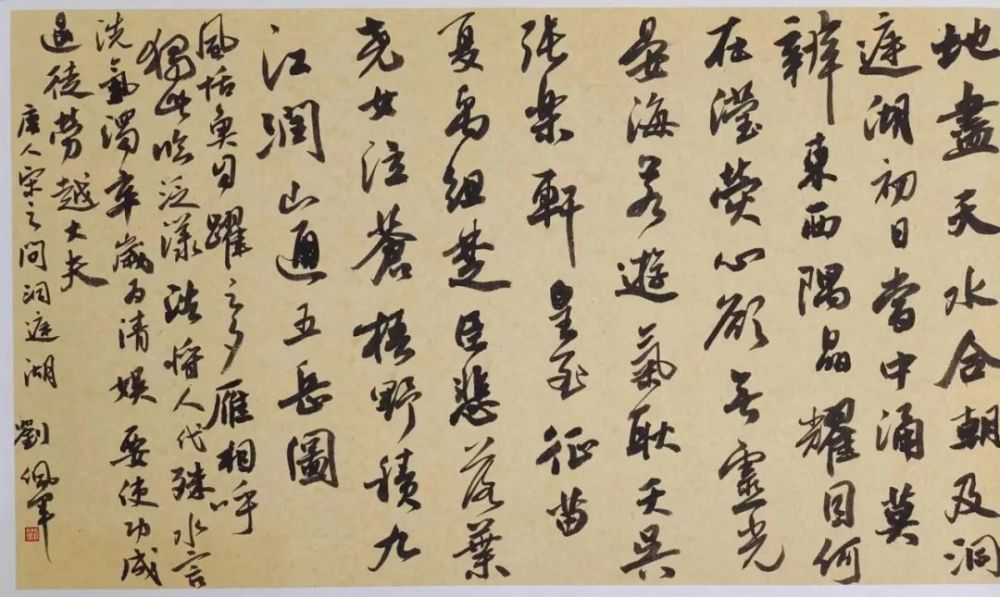 地盡天水合朝及洞
庭湖初日當中涌莫
辨東西隅晶耀目何
在瀅熒心欲無靈光
晏海若遊氣耿天吳
張樂軒皇至征苗
夏禹徂楚臣悲落葉
堯女泣蒼梧野積九
江潤山通五岳圖
風恬魚自躍云夕雁相呼
獨此臨泛漾浩將人代殊永言
洗氛濁卒歲為清娛要使功成
退徒勞越大夫
唐人宋之問洞庭湖
劉佩軍